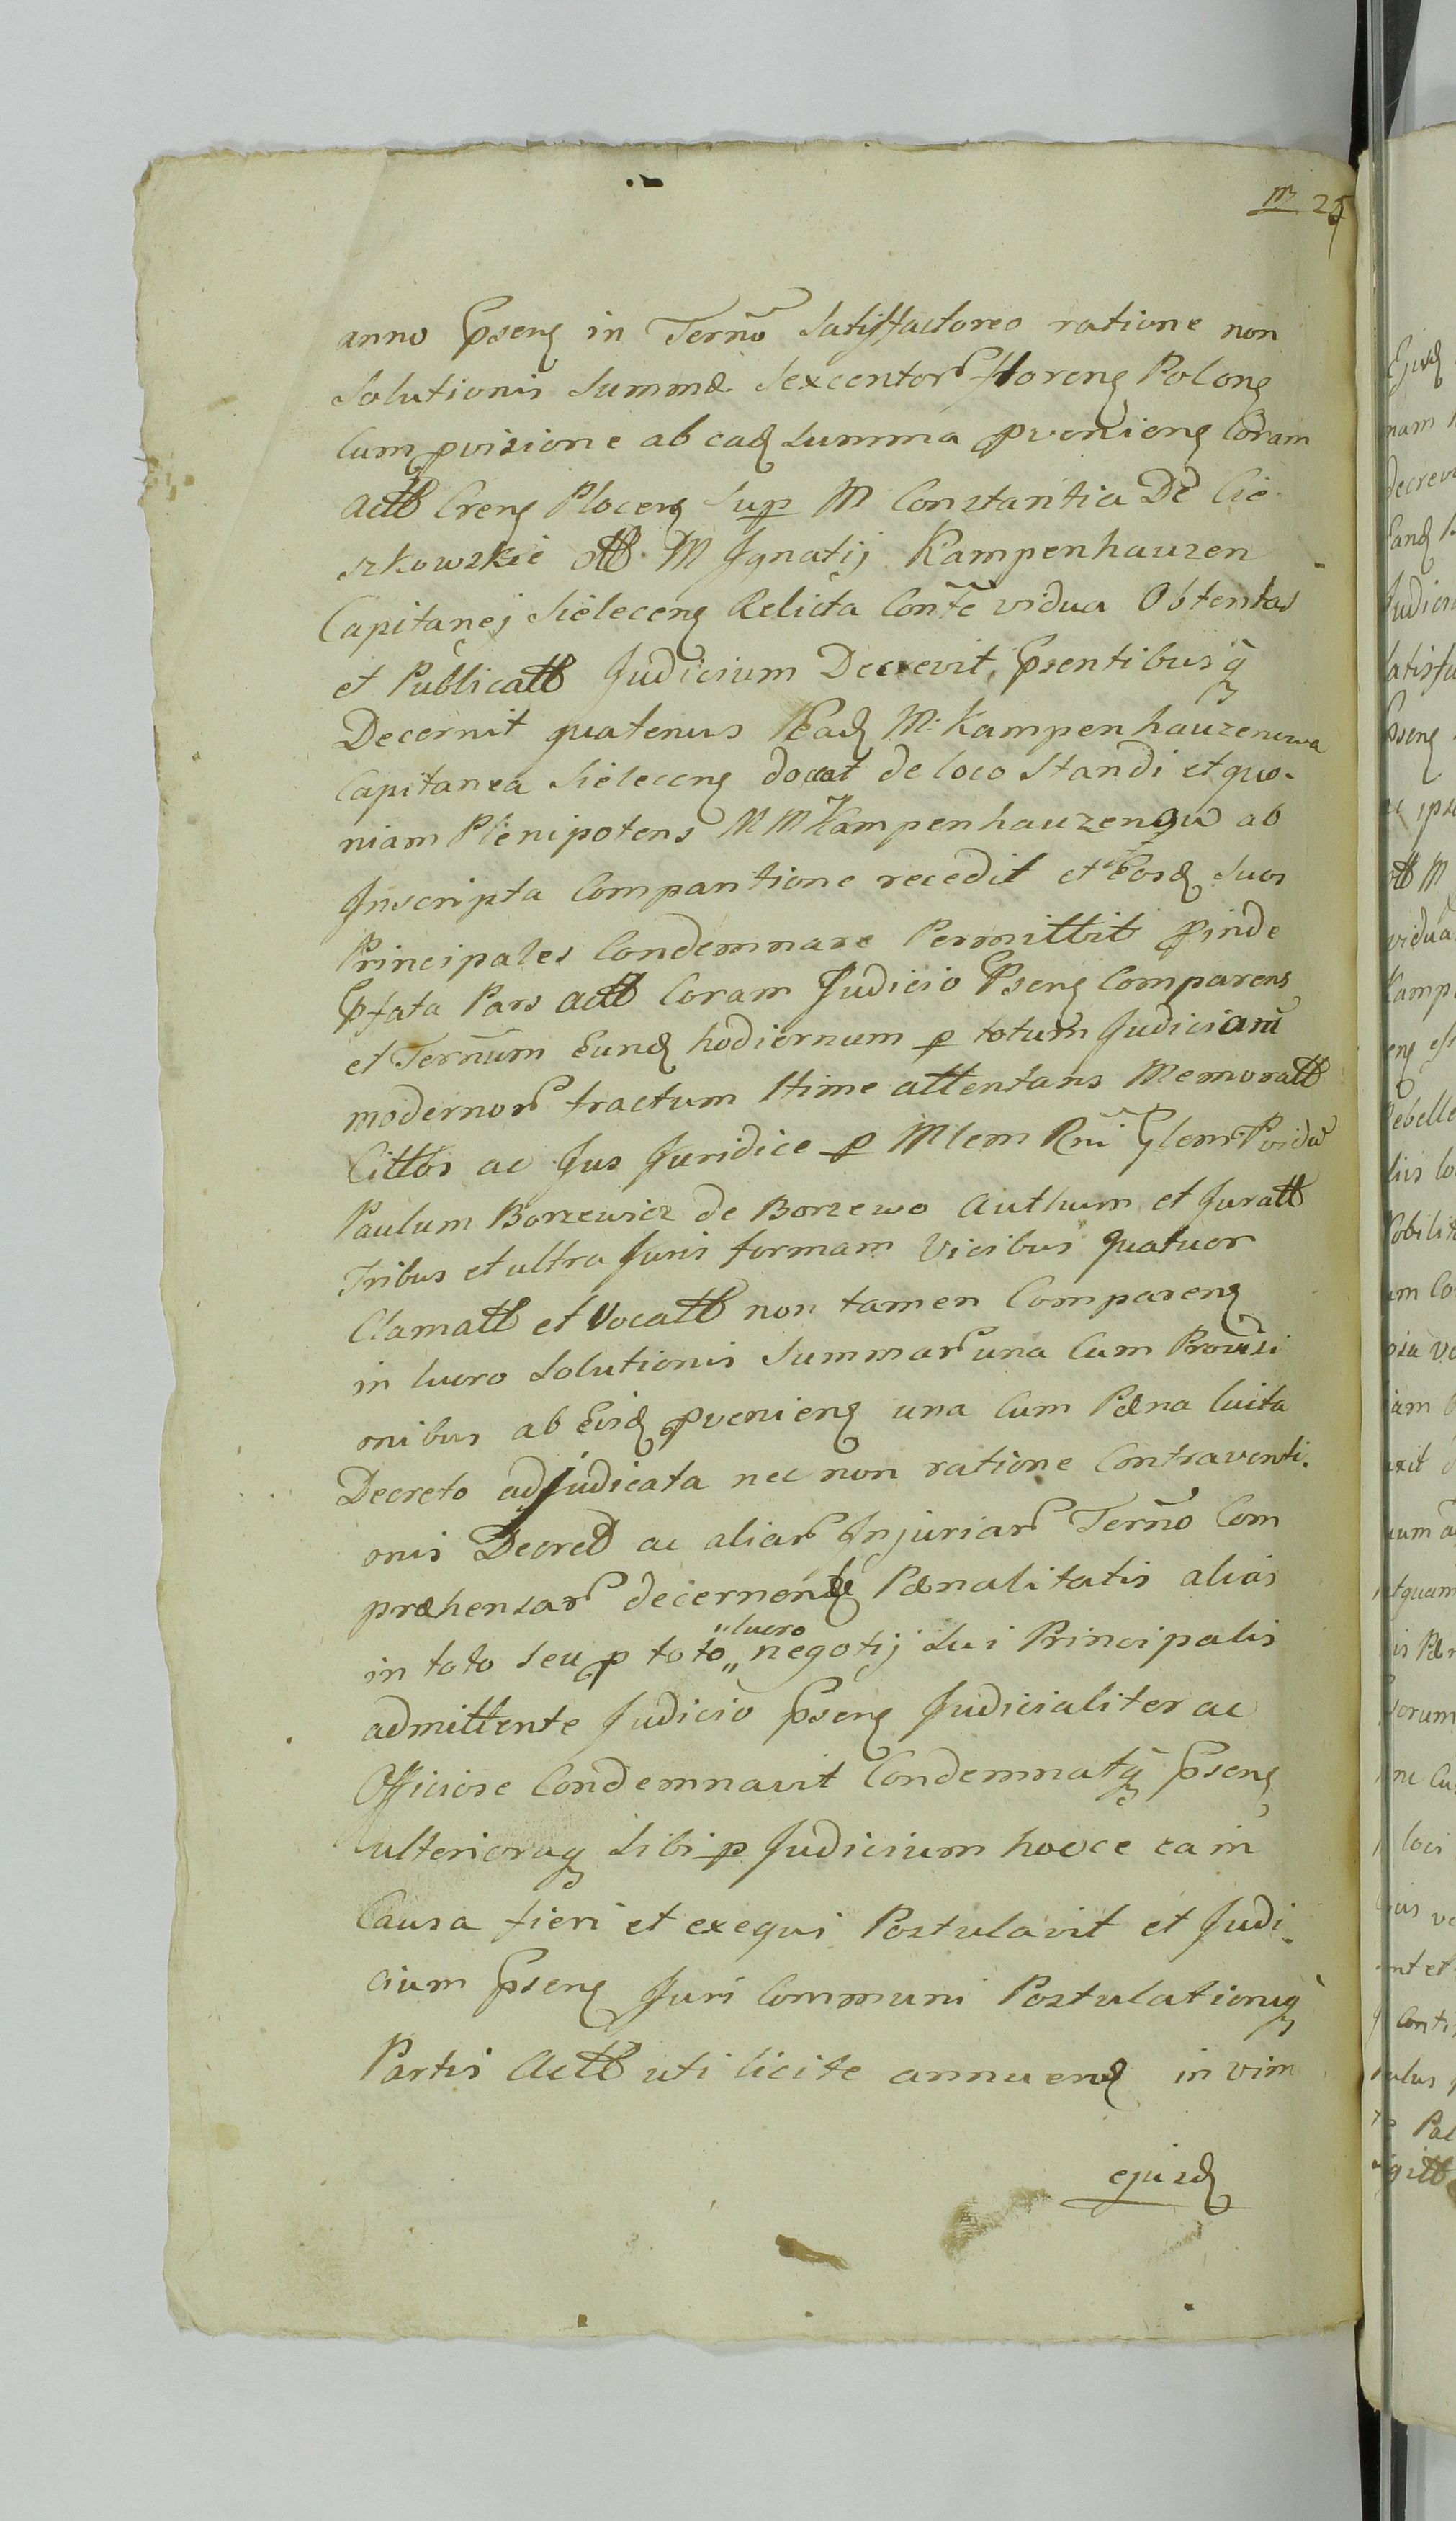 m 25
anno Psens in Termo Satisfactoreo ratione non
Solutionis Summæ Sexcentor florens Polons
Cum pvisione ab ead summa pveniens Coram
actt Crens Plocens Sup M Constantia De Cie
szkowskie ott M Ignatij Kampenhauzen
Capitanej Sieleceng Relicta Conte vidua Obtentas
et Publicatt Judicium Decrevit, Psentibusq
Decernit quatenus Ead M. Kampenhauzenowa
Capitanea Sieleceng doceat de loco Standi et quo-
niam Plenipotens M M Kampenhauzen ab
Inscripta Compantione recedit et Eosd suos
Principales Condemnare Permittit pinde
Pfata Pars actt Coram Judicio Psens Comparens
et Termum Eund hodiernum p totum Judiciarũ
modernor tractum Ltime attentans Memoratt
Cittos ac Jus Juridice p Mlem Rni Glem Pvidũ
Paulum Borzewicz de Borzewo Authum et Juratt
Tribus et ultra Juris formam Vicibus quatuor
Clamatt et Vocatt non tamen Comparens
in lucro Solutionis Summar una Cum Provisi
onibus ab Eisd pveniens una Cum Pæna luita
Decreto adjudicata nec non ratione Contraventi-
onis Decret ac aliar Injuriar Termo Com
præhensar decernend Pænalitatis alias
in toto seu p toto "lucro" negotij sui Principalis
admittente Judicio Psens Judicialiter ac
Officiose Condemnavit Condemnatq Psens
ulterioraq Sibi p Judicium hocce ea in
Causa fieri et exequi Postulavit et Judi-
cium Psens Juri Communi Postulationiq
Partis Actt uti licite annuend in vim
ejusd